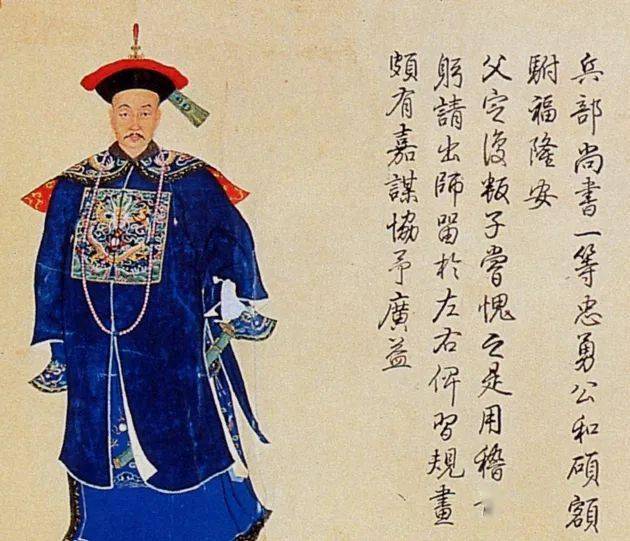 兵部尚書一等忠勇公和碩額
駙福隆安
父定復叛子嘗愧之是用稽
躬請出師留於左右俾習規畫
頗有嘉謀協予廣益